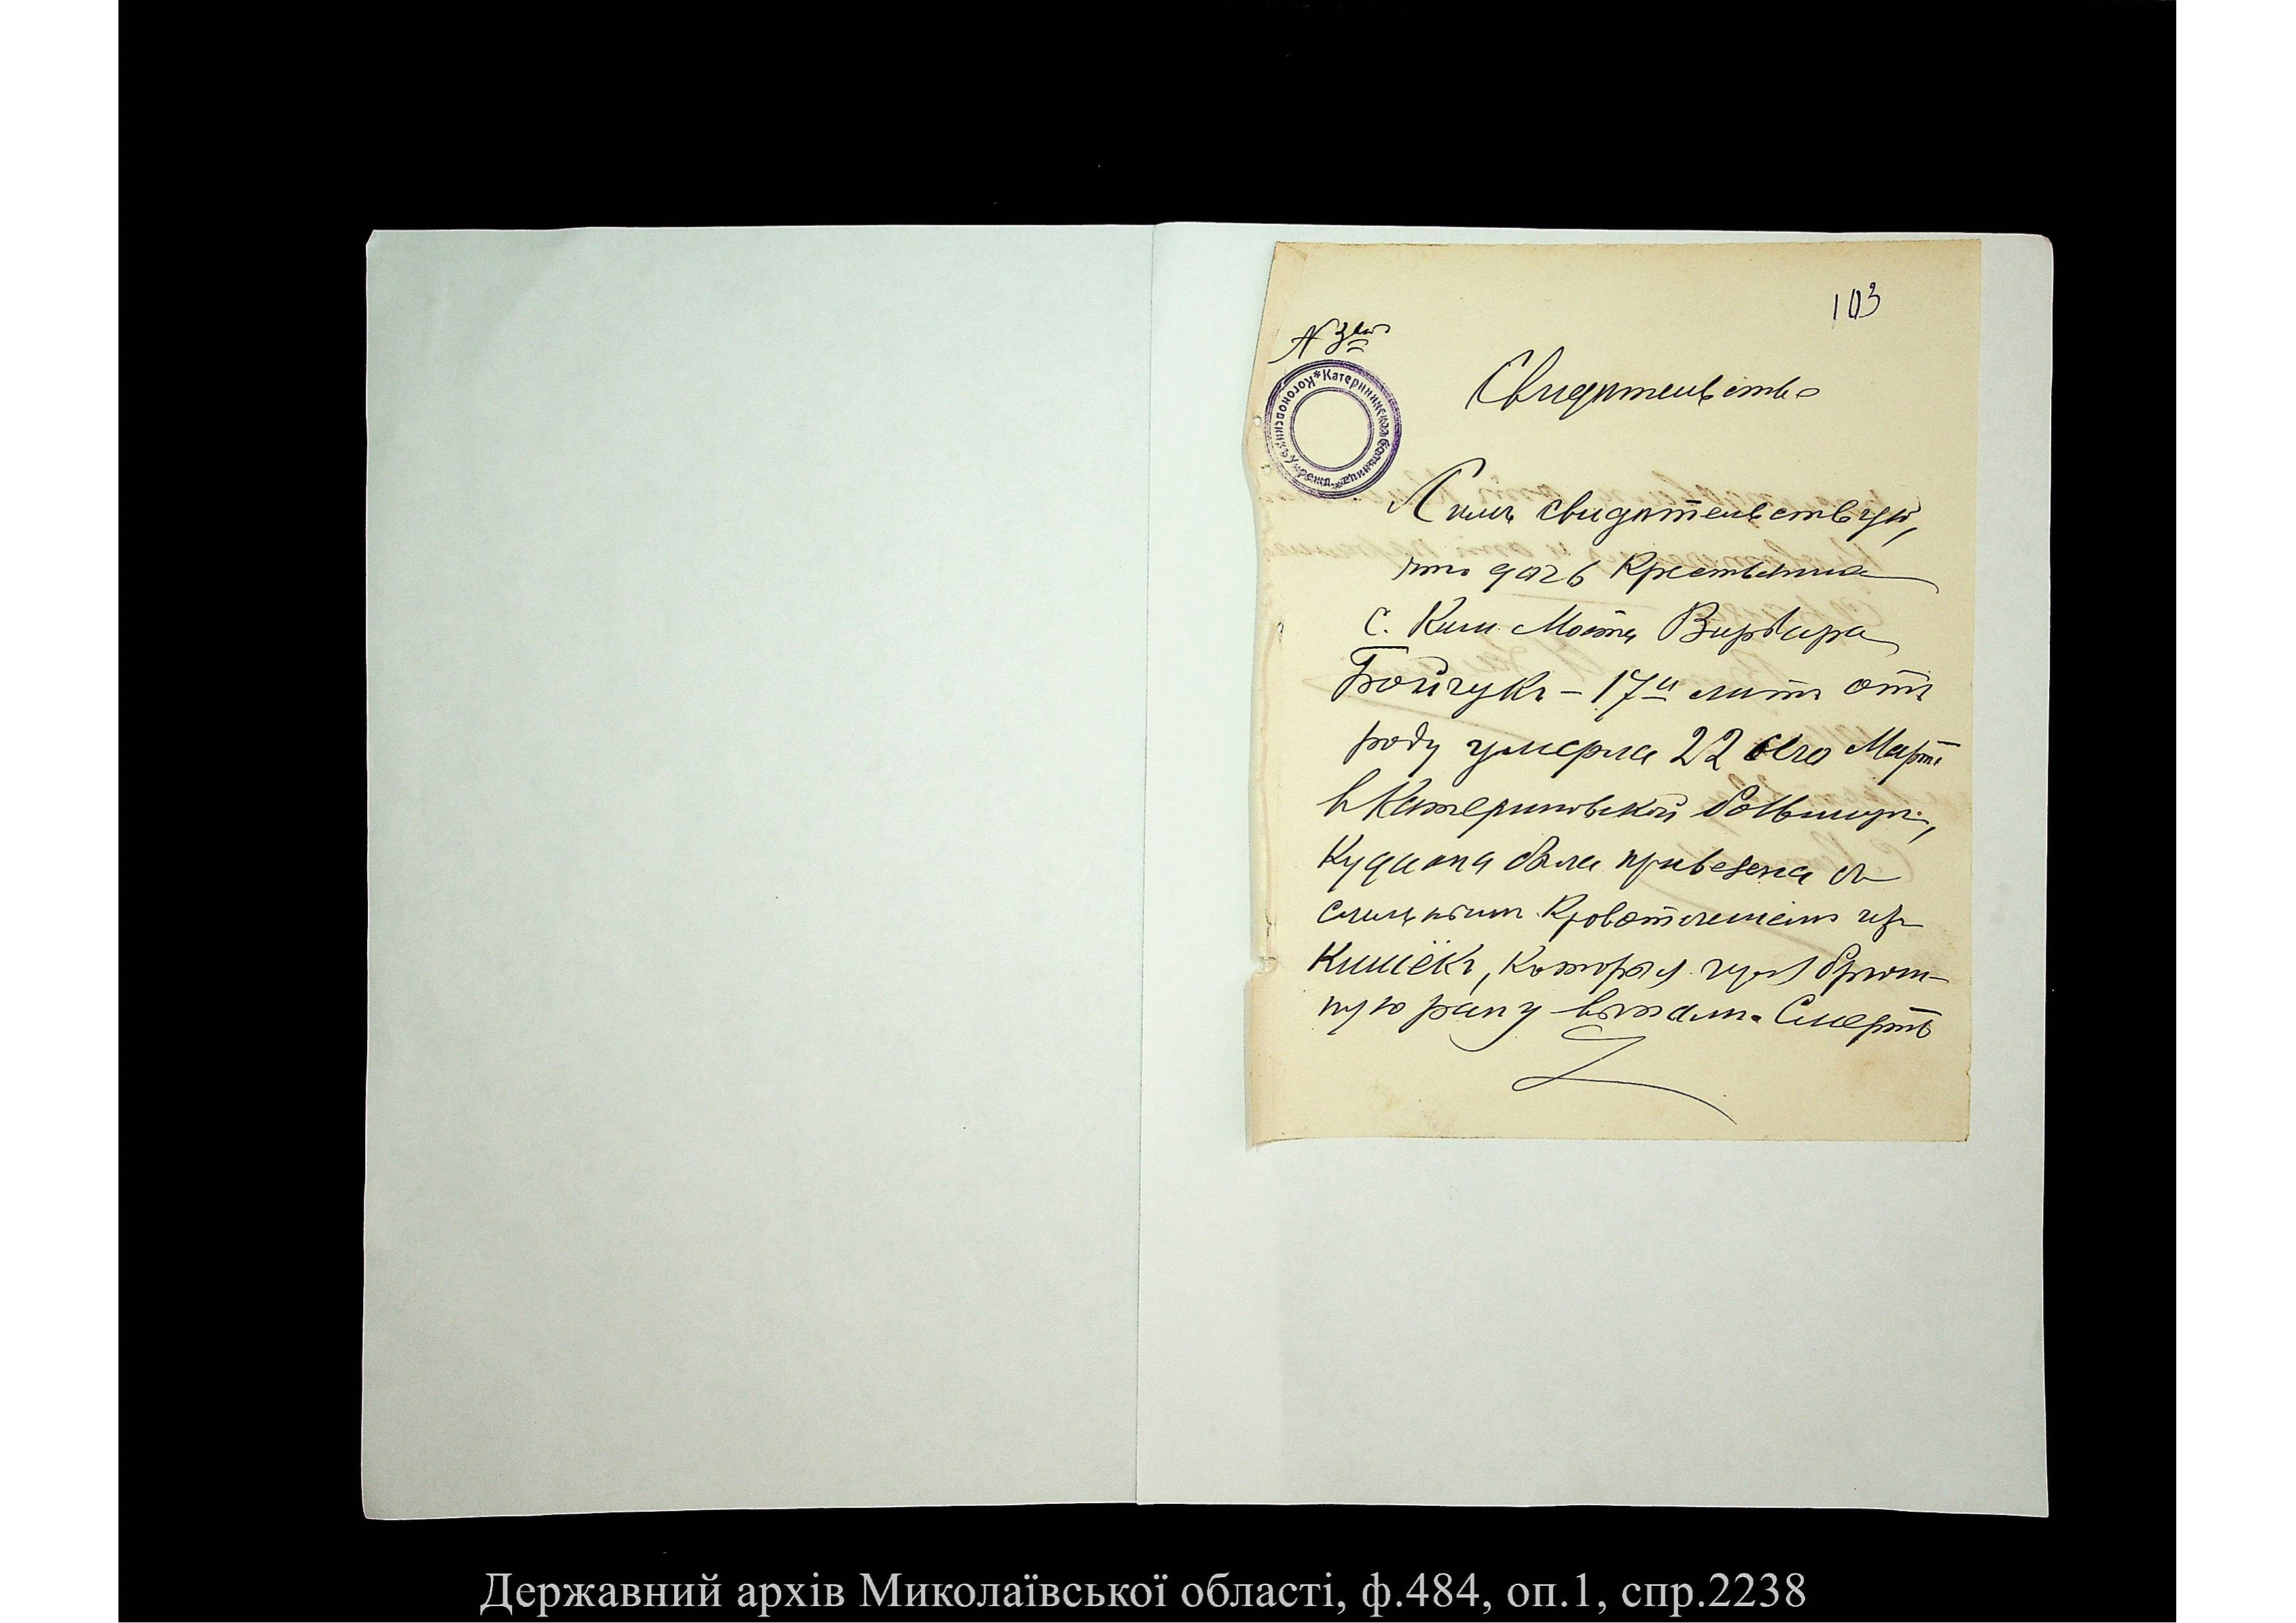 103
N 3
Катерининская больница * Короновскихъ Учрежд. *
Свидѣтельство
Симъ свидѣтельствую,
что дочь Крестьянина
с. Криш Моста Варвара
Бойчукъ – 17и лѣтъ отъ
роду умерла 22 сего Март
в Катериновской больницѣ,
куда она была привезена съ
сильнымъ кровотеченіемъ изъ
кишекъ, которыя чрез брюш-
ную рану выпали. Смерть
Державний архів Миколаївської області, ф.484, оп.1, спр.2238